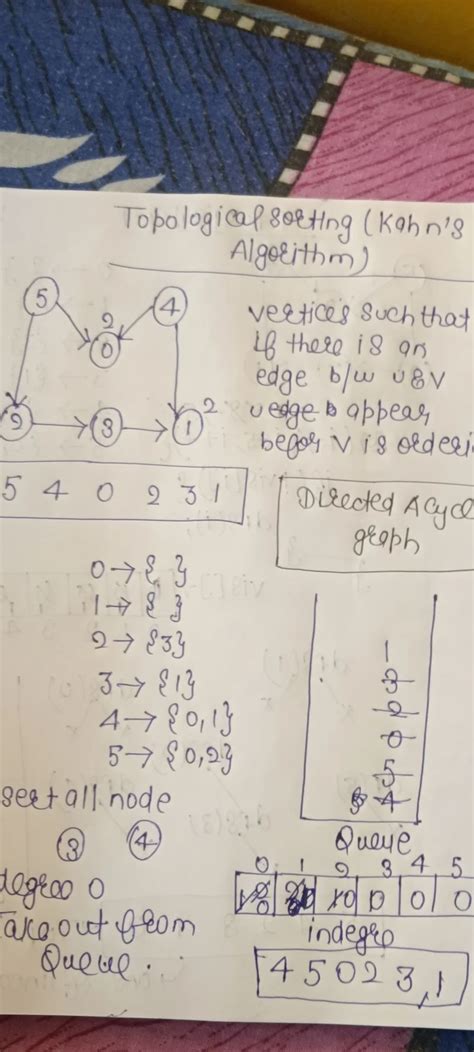 Topological Sorting (Kahn's
Algorithm)
5
4
2
0
2
3
1
2
vertices such that
if there is an
edge b/w u & V
u edge appear
befor V is orderi
5 4 0 2 3 1
Directed Acycl
graph
0 → { }
1 → { }
2 → {3}
3 → {1}
4 → {0,1}
5 → {0,2}
1
3
2
0
5
4
Queue
sert all node
3
4
degree 0
Take out from
Queue.
0 1 2 3 4 5
0 0 0 0 0
indegre
4 5 0 2 3, 1